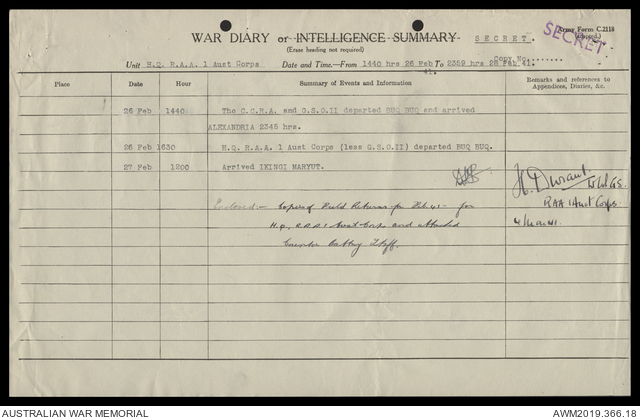 WAR DIARY or INTELLIGENCE SUMMARY. SECRET. Army Form C.2118
(Erase heading not required) SECRET
Copy No........
Unit H.Q. R.A.A. 1 Aust Corps Date and Time—From 1440 hrs 26 Feb To 2359 hrs 28 Feb 41.
41.
Place Date Hour Summary of Events and Information Remarks and references to Appendices, Diaries, &c.
26 Feb 1440 The C.C.R.A. and G.S.O.II departed BUQ BUQ and arrived
ALEXANDRIA 2345 hrs.
26 Feb 1630 H.Q. R.A.A. 1 Aust Corps (less G.S.O.II) departed BUQ BUQ.
27 Feb 1200 Arrived IKINGI MARYUT.
Enclosed:- Copies of Field Returns for Feb 41 - for
H.Q. R.A.A. 1 Aust Corps and attached
Counter Battery Staff.
RAA 1 Aust Corps
AUSTRALIAN WAR MEMORIAL AWM2019.366.18